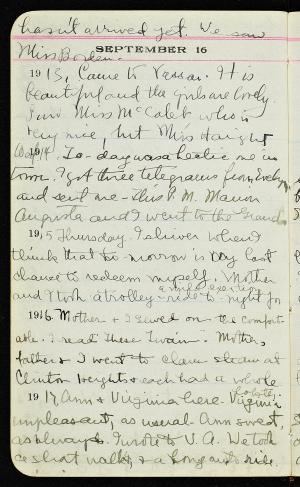 hasn't arrived yet. We saw
Miss Borden.
SEPTEMBER 16
1913, Came to Vassar. It is
beautiful and the girls are lovely.
Saw Miss McCaleb who is
very nice, but Miss Haight
Wed 1914. To-day was a hectic one in
town. I got three telegrams from Evelyn
and sent me - this P.M. Manon
Augusta and I went to the Grand
1915 Thursday. I shiver when I
think that to-morrow is my last
chance to redeem myself. Mother
and I took a trolley-ride to-night for
1916. Mother & I sewed on the comfort-
able. I read These Twain. Mother,
father & I went to clam steam at
Clinton Heights & each had a whole
1917, Ann & Virginia here. Virginia
unpleasant, as usual. Ann sweet,
as always. I wrote to V. A. We took
a short walk, & a long auto ride.